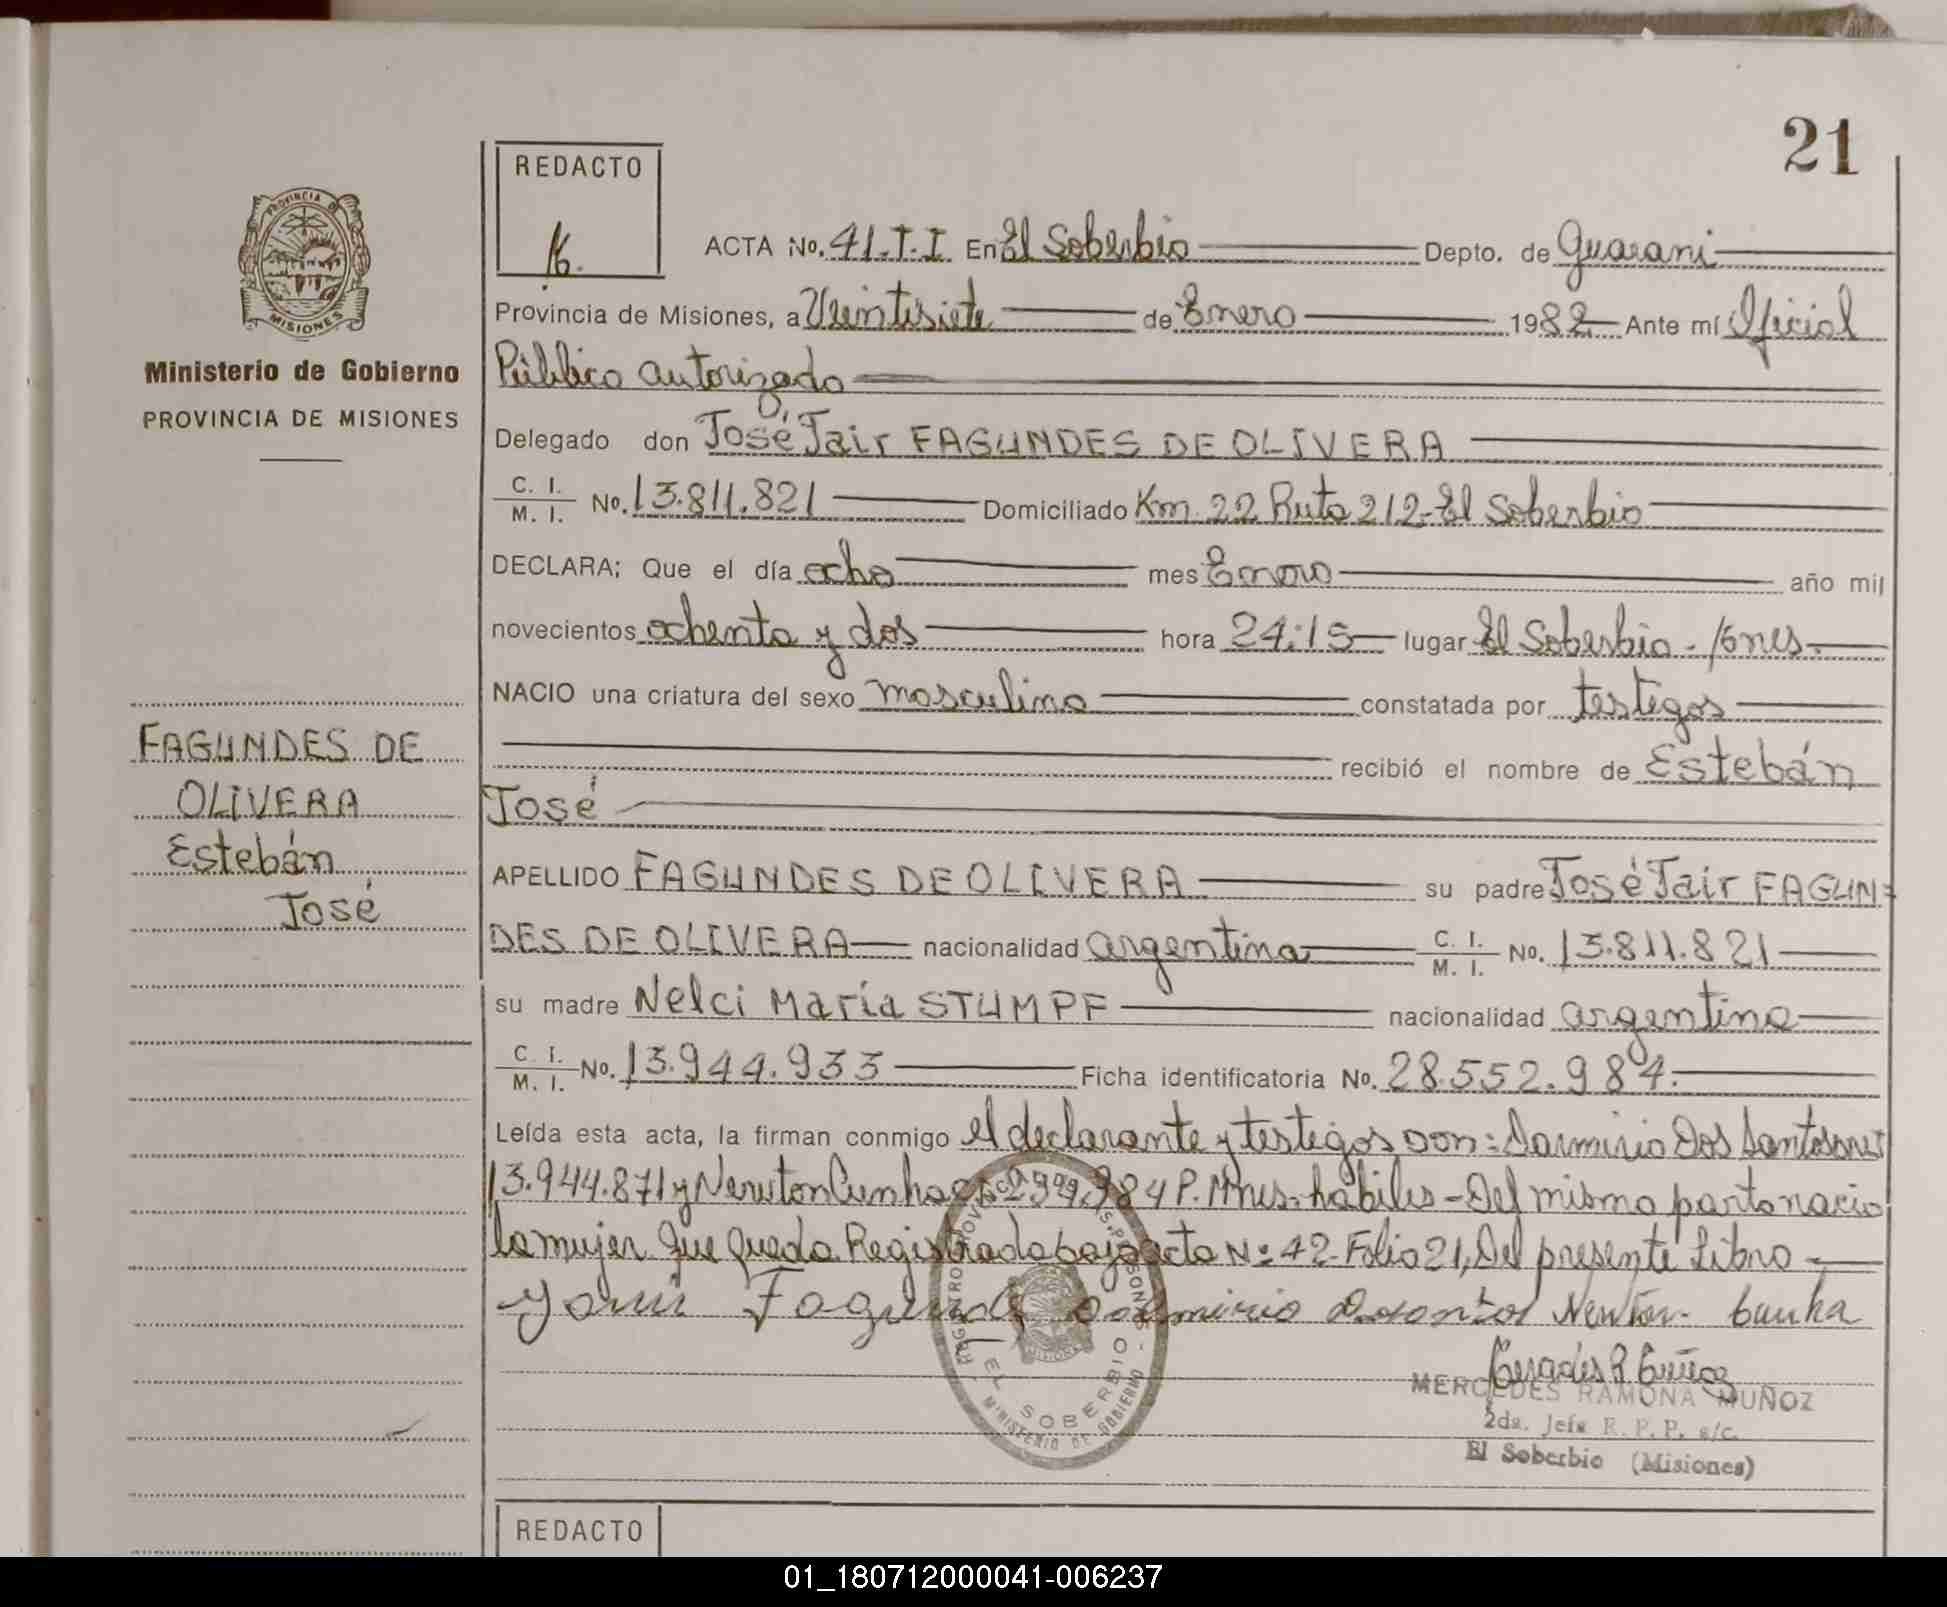 21
REDACTO
PROVINCIA DE
MISIONES
Ministerio de Gobierno
PROVINCIA DE MISIONES
ACTA No. 41.T.I En El Soberbio Depto. de Guarani
Provincia de Misiones, a Veintisiete de Enero 1982 Ante mí Oficial
Público autorizado
Delegado don José Jair FAGUNDES DE OLIVERA
C. I.
M. I. No. 13.811.821 Domiciliado Km 22 Ruta 212-El Soberbio
DECLARA; Que el día ocho mes Enero año mil
novecientos ochenta y dos hora 24:15 lugar El Soberbio - Mnes.
NACIO una criatura del sexo masculino constatada por testigos
recibió el nombre de Estebán
José
FAGUNDES DE
OLIVERA
Estebán
José
APELLIDO FAGUNDES DE OLIVERA su padre José Jair FAGUN=
DES DE OLIVERA nacionalidad argentina C. I.
M. I. No. 13.811.821
su madre Nelci María STUMPF nacionalidad argentina
C. I.
M. I. No. 13.944.933 Ficha identificatoria No. 28.552.984.
Leída esta acta, la firman conmigo el declarante y testigos Don: Darmirio Dos Santos
13.944.871 y Newton Cunha P. Mnes. habiles - Del mismo parto nacio
la mujer que queda Registrada bajo acta Nº 42 Folio 21, Del presente Libro
Newton Cunha
EL SOBERBIO
MINISTERIO DE GOBIERNO
MERCEDES RAMONA MUÑOZ
2da. Jefa R. P. P. s/c.
El Soberbio (Misiones)
REDACTO
01_180712000041-006237